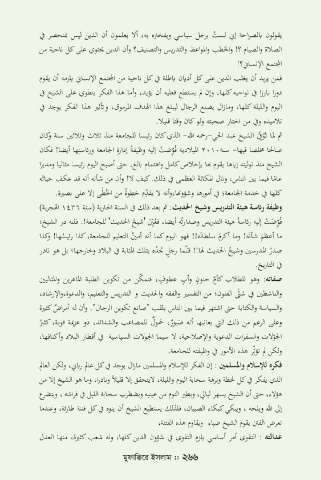 يقولون بالصراحة إني لستُ برجل سياسي ويفتخرون به، ألا يعلمون أن الدين ليس بمنحصر في
الصلاة والصيام ؟! والخطب والمواعظ والتدريس والتصنيف؟ وأن الدين يحتوي على كل ناحية من
المجتمع الإنساني؟!
فمن يريد أن يغلب الدين على كل أديان باطلة في كل ناحية من المجتمع الإنساني يلزمه أن يقوم
دورا بارزا في نواحيه كلها، وإن لم يستطع فعليه أن يؤيد، وأما هذا الفكر ينطوي على الشيخ في
اليوم والليلة كلها، ومازال يصنع الرجال ليبلغ هذا الهدف المرموق، وتأثير هذا الفكر يوجد في
تلاميذه وفي من اختار صحبته ولو كان وقتا قليلا.
ثم لما تُوُفِّيَ الشيخ عبد الحي-رحمه الله- الذي كان رئيسا للجامعة منذ ثلاث وثلاثين سنة وكان
صالحا مخلصا فيها- سنة ٢٠١٠ الميلادية فُوِّضتْ إليه وظيفةُ إدارة الجامعة ورئاستها أيضا! فكان
الشيخ منذ توليته إياها يقوم بها بإخلاص كامل واهتمام بالغ. حتى أصبح اليوم رئيسا مثاليا ومديرا
عامّا فيما بين الناس، ونال المكانةَ العظمى في ذلك. كيف لا؟! وأن من شأنه أنه قد عكف حياله
كلها في خدمة الجامعة؛ في أمورها وشؤونها،وأنه لا يقدّم خطوةً من الخُطَى إلا على بصيرة.
وظيفة رئاسة هيئة التدريس وشيخ الحديث. ثم بعد ذلك في السنة الجارية (سنة ١٤٣٦ الهجرية)
فُوِّضتْ إليه رئاسةُ هيئة التدريس وصدارتُه أيضا، فقُرّرَ "شيخَ الحديث" للجامعة!. فلله در الشيخ؛
ما أعظمَ شأنه! وما أكرمَ سلطانه!! فهو اليوم كما أنه أمينُ التعليم للجامعة، كذا رئيسُها! وكذا
صدرُ المدرسين وشيخُ الحديث لها!! فنُلفا رجل نُحدّه بتلك المثابة في البلاد وخارجها؛ بل هو نادر
في التاريخ.
صفاته: وهو للطلاب كأمّ حنونٍ وأبٍ عطوفٍ، فتمكّن من تكوين الطلبة الماهرين والمثاليين
والناشطين في شتّى الفنون؛ من التفسير والفقه والحديث و التدريس والتعليم، والدعوة،والإرشاد،
والسياسة والكتابة حتى اشتهر فيما بين الناس بلقب "صانع تكوين الرجال". وأن له أمراضٌ كثيرةٌ
وعلى الرغم من ذلك التي يعانيها أنه صَبورٌ، حَمولٌ للمصاعب والشدائد، ذو عزيمة قوية، كثيرُ
الجولات والسفرات الدعوية والإصلاحية، لا سيما الجولات السياسية في أقطار البلاد وأكنافها،
ولكن لم تؤثّر هذه الأمور في وظيفته للجامعة.
فكره للإسلام والمسلمين : إن الفكر للإسلام والمسلمين مازال يوجد في كل عالم رباني، ولكن العالم
الذي يفكر في كل لحظة وبرهة سحابة اليوم والليلة، لايتحقق إلا قليلاً ونادرا، وما هو الشيخ إلا من
هؤلاء، حتى أن الشيخ يسهر ليالي، ويطير النوم من عينيه ويضطرب سحابة الليل في فراشه ، ويتضرع
إلى الله ويلحه ، ويبكي كبكاء الصبيان، فلذلك يستطيع الشيخ أن يتوه في كل فتنة طارئة، وعندما
تعرض الفتن يقوم الشيخ ضياء ويقاوم هذه الفتنة،
عدالته : التقوى أمر أساسي يلزم التقوى في شؤون الدين كلها، وله شعب كثيرة، منها العدل
মুফাক্কিরে ইসলাম :: ২৬৬